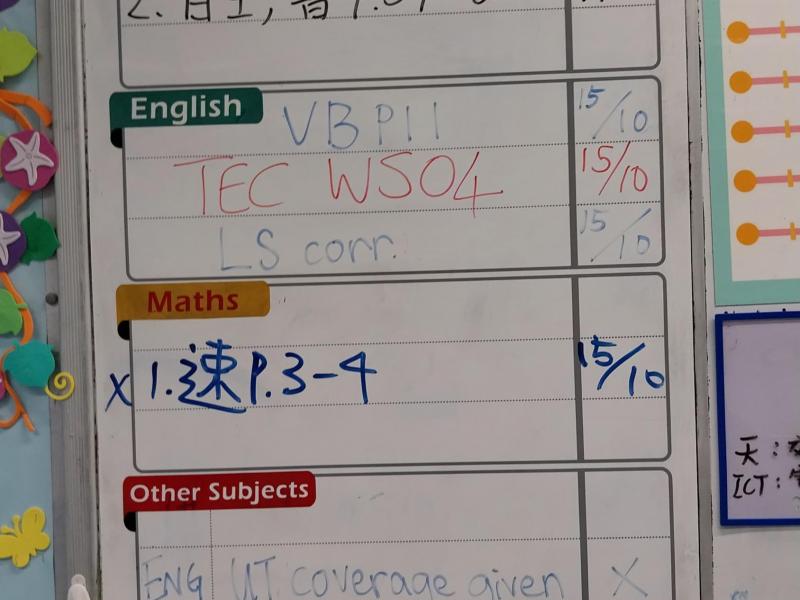 2.
English
VB P11 15/10
TEC WS04 15/10
LS corr. 15/10
Maths
x 1.速P.3-4 15/10
Other Subjects
ENG UT coverage given X
天:
ICT: